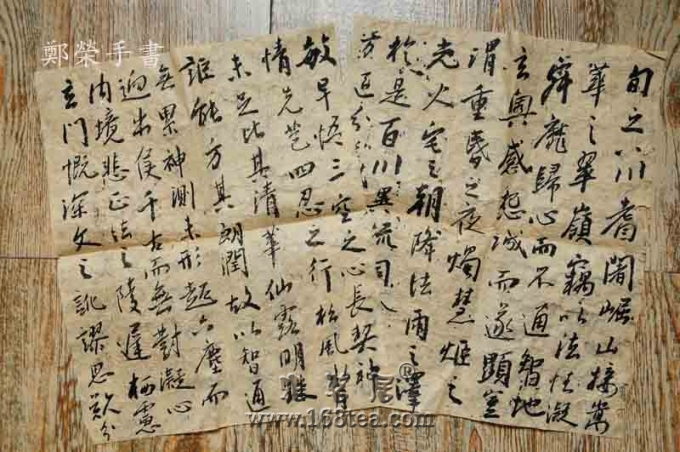 鄭榮手書
旬之川耆闍崛山接嵩
華之翠嶺竊以法性凝
寂靡歸心而不通智地
玄奧感恳誠而遂顯豈
謂重昏之夜燭慧炬之
光火宅之朝降法雨之澤
於是百川異流同
敏早悟三空之心長契神
情先苞四忍之行松風
未足比其清華仙露明珠
詎能方其朗潤故以智通
無累神測未形超六塵而
迥出隻千古而無對凝心
內境悲正法之陵遲栖慮
玄門慨深文之訛謬思欲分
www.168tea.com